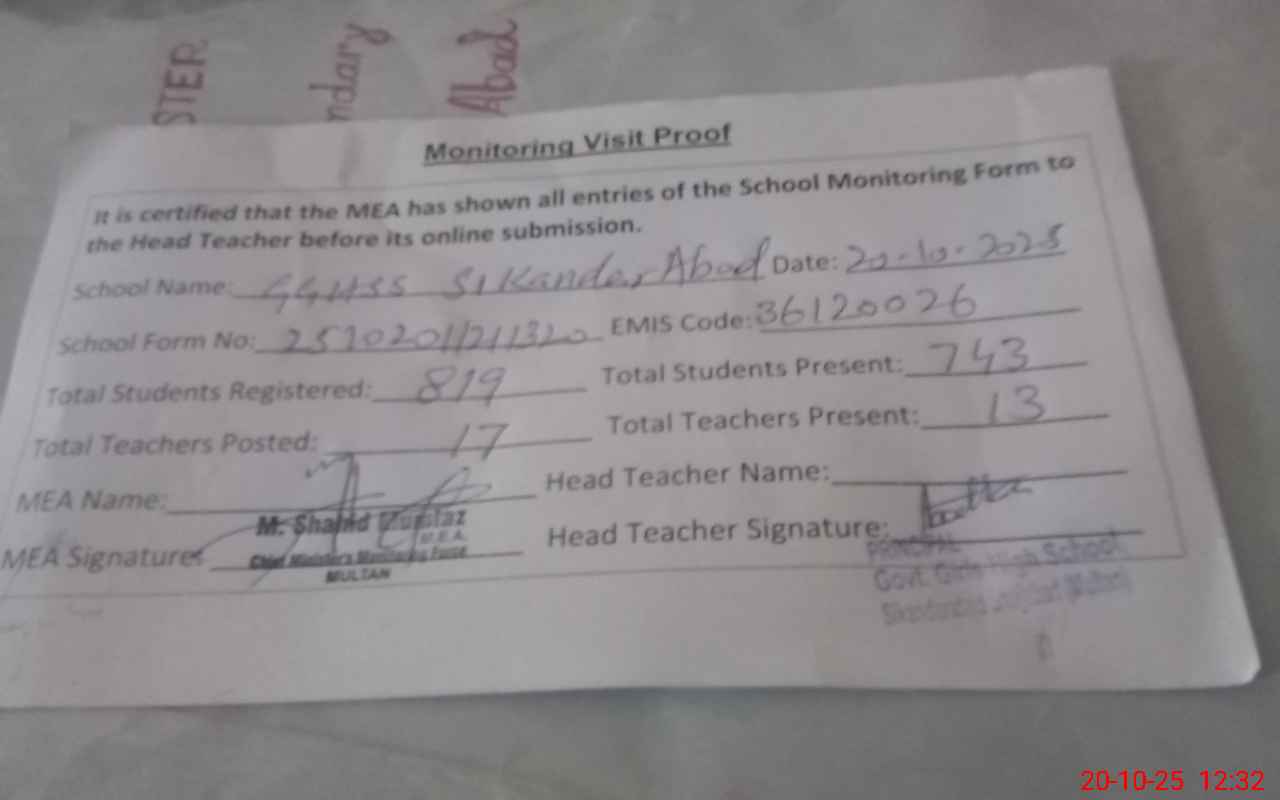 STER
ndary
Abad
Monitoring Visit Proof
It is certified that the MEA has shown all entries of the School Monitoring Form to
the Head Teacher before its online submission.
School Name: GGHSS SIKandar Abad Date: 20-10-2025
School Form No: EMIS Code: 36120026
Total Students Registered: 819 Total Students Present: 743
Total Teachers Posted: 17 Total Teachers Present: 13
MEA Name: Head Teacher Name:
M. Shahid Mumtaz
M.E.A.
MEA Signature: Head Teacher Signature:
Chief Minister's Monitoring Force
MULTAN
PRINCIPAL
Govt. Girls High School
20-10-25 12:32